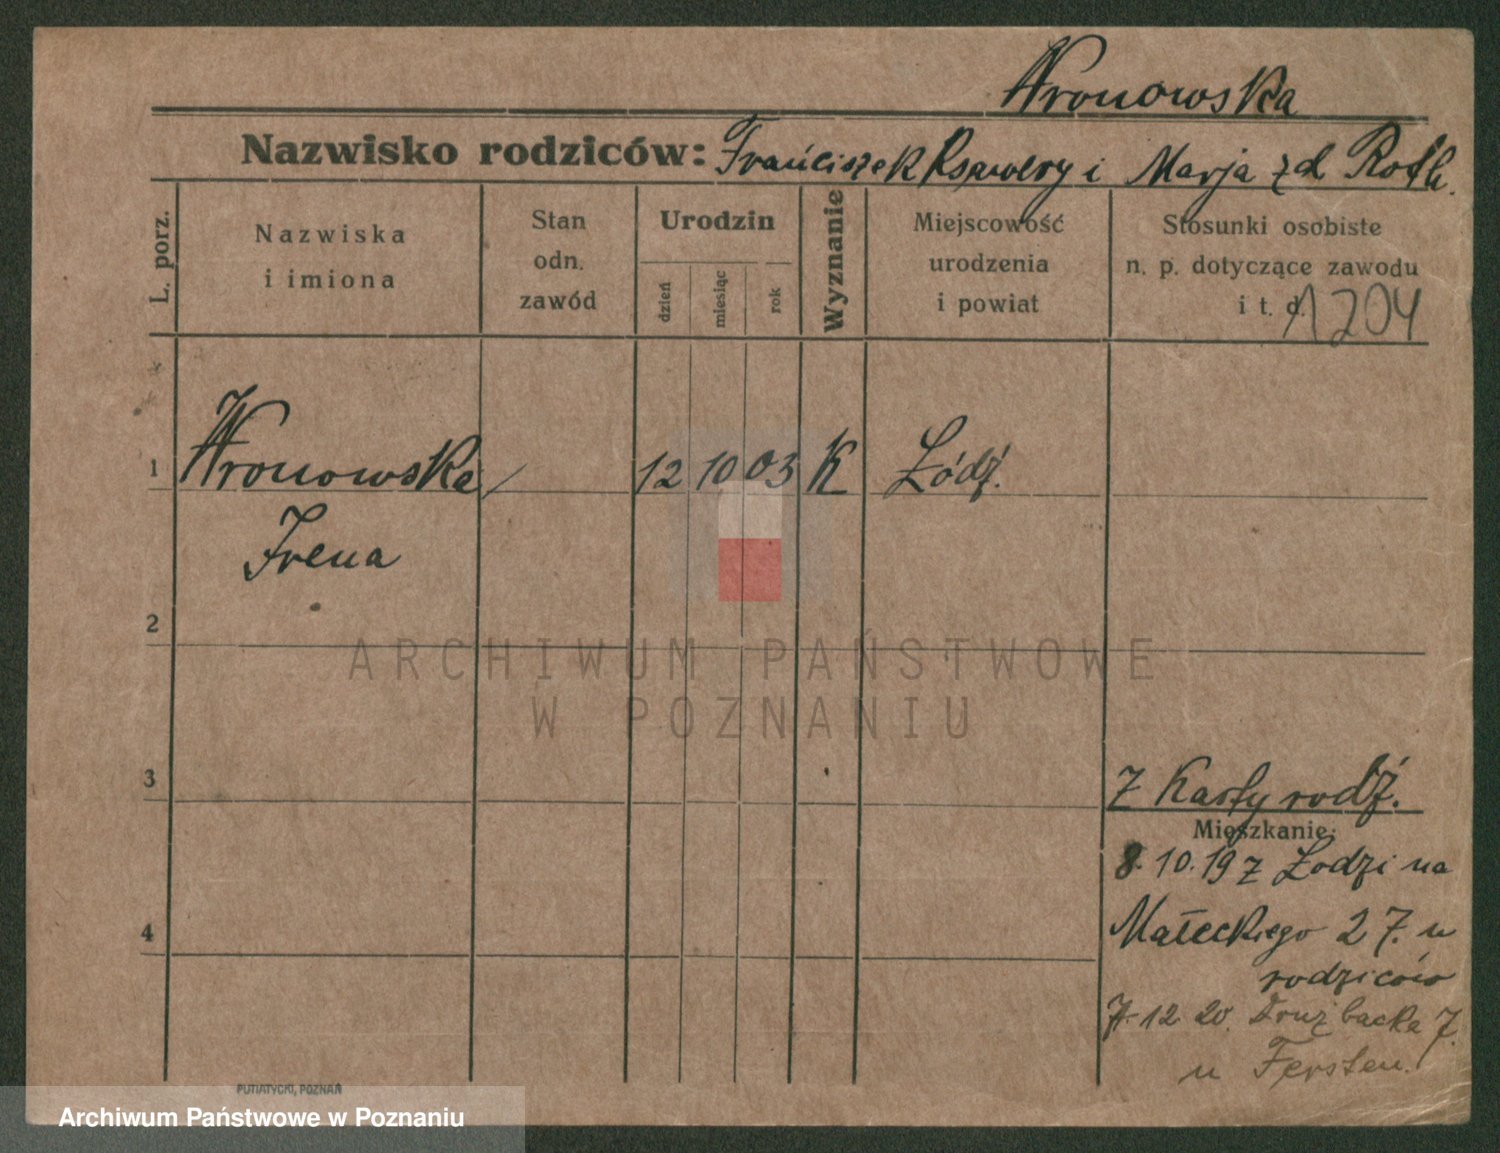 Wronowska
Nazwisko rodziców: Franciszek Ksawery i Marja zd Roth.
L. porz.
Nazwiska
i imiona
Stan
odn.
zawód
Urodzin
dzień
miesiąc
rok
Wyznanie
Miejscowość
urodzenia
i powiat
Stosunki osobiste
n. p. dotyczące zawodu
i t. d.
1204
1 Wronowska / 12 10 03 K Łódź.
Irena
2
3
4
Z Karty rodź.
Mieszkanie:
8.10.19 z Łodzi na
Małeckiego 27. u
rodziców
7.12.20. Drużbacka 7.
u Fersten.
ARCHIWUM PAŃSTWOWE
W POZNANIU
PUTIATYCKI, POZNAŃ
Archiwum Państwowe w Poznaniu